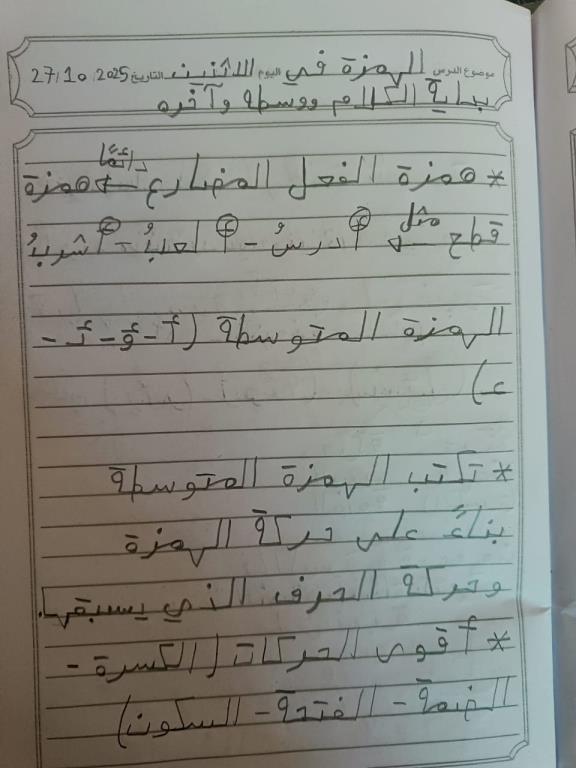 موضوع الدرس الهمزة في اليوم الاثنين التاريخ 27/10/2025
بداية الكلام ووسطه وآخره
دائمًا
* همزة الفعل المضارع ← همزة
قطع مثل أدرسُ - ألعبُ - أشربُ
الهمزة المتوسطة (أ - ؤ - ئـ -
ء)
* تكتب الهمزة المتوسطة
بناءً على حركة الهمزة
وحركة الحرف الذي يسبقها.
* أقوى الحركات (الكسرة -
الضمة - الفتحة - السكون)